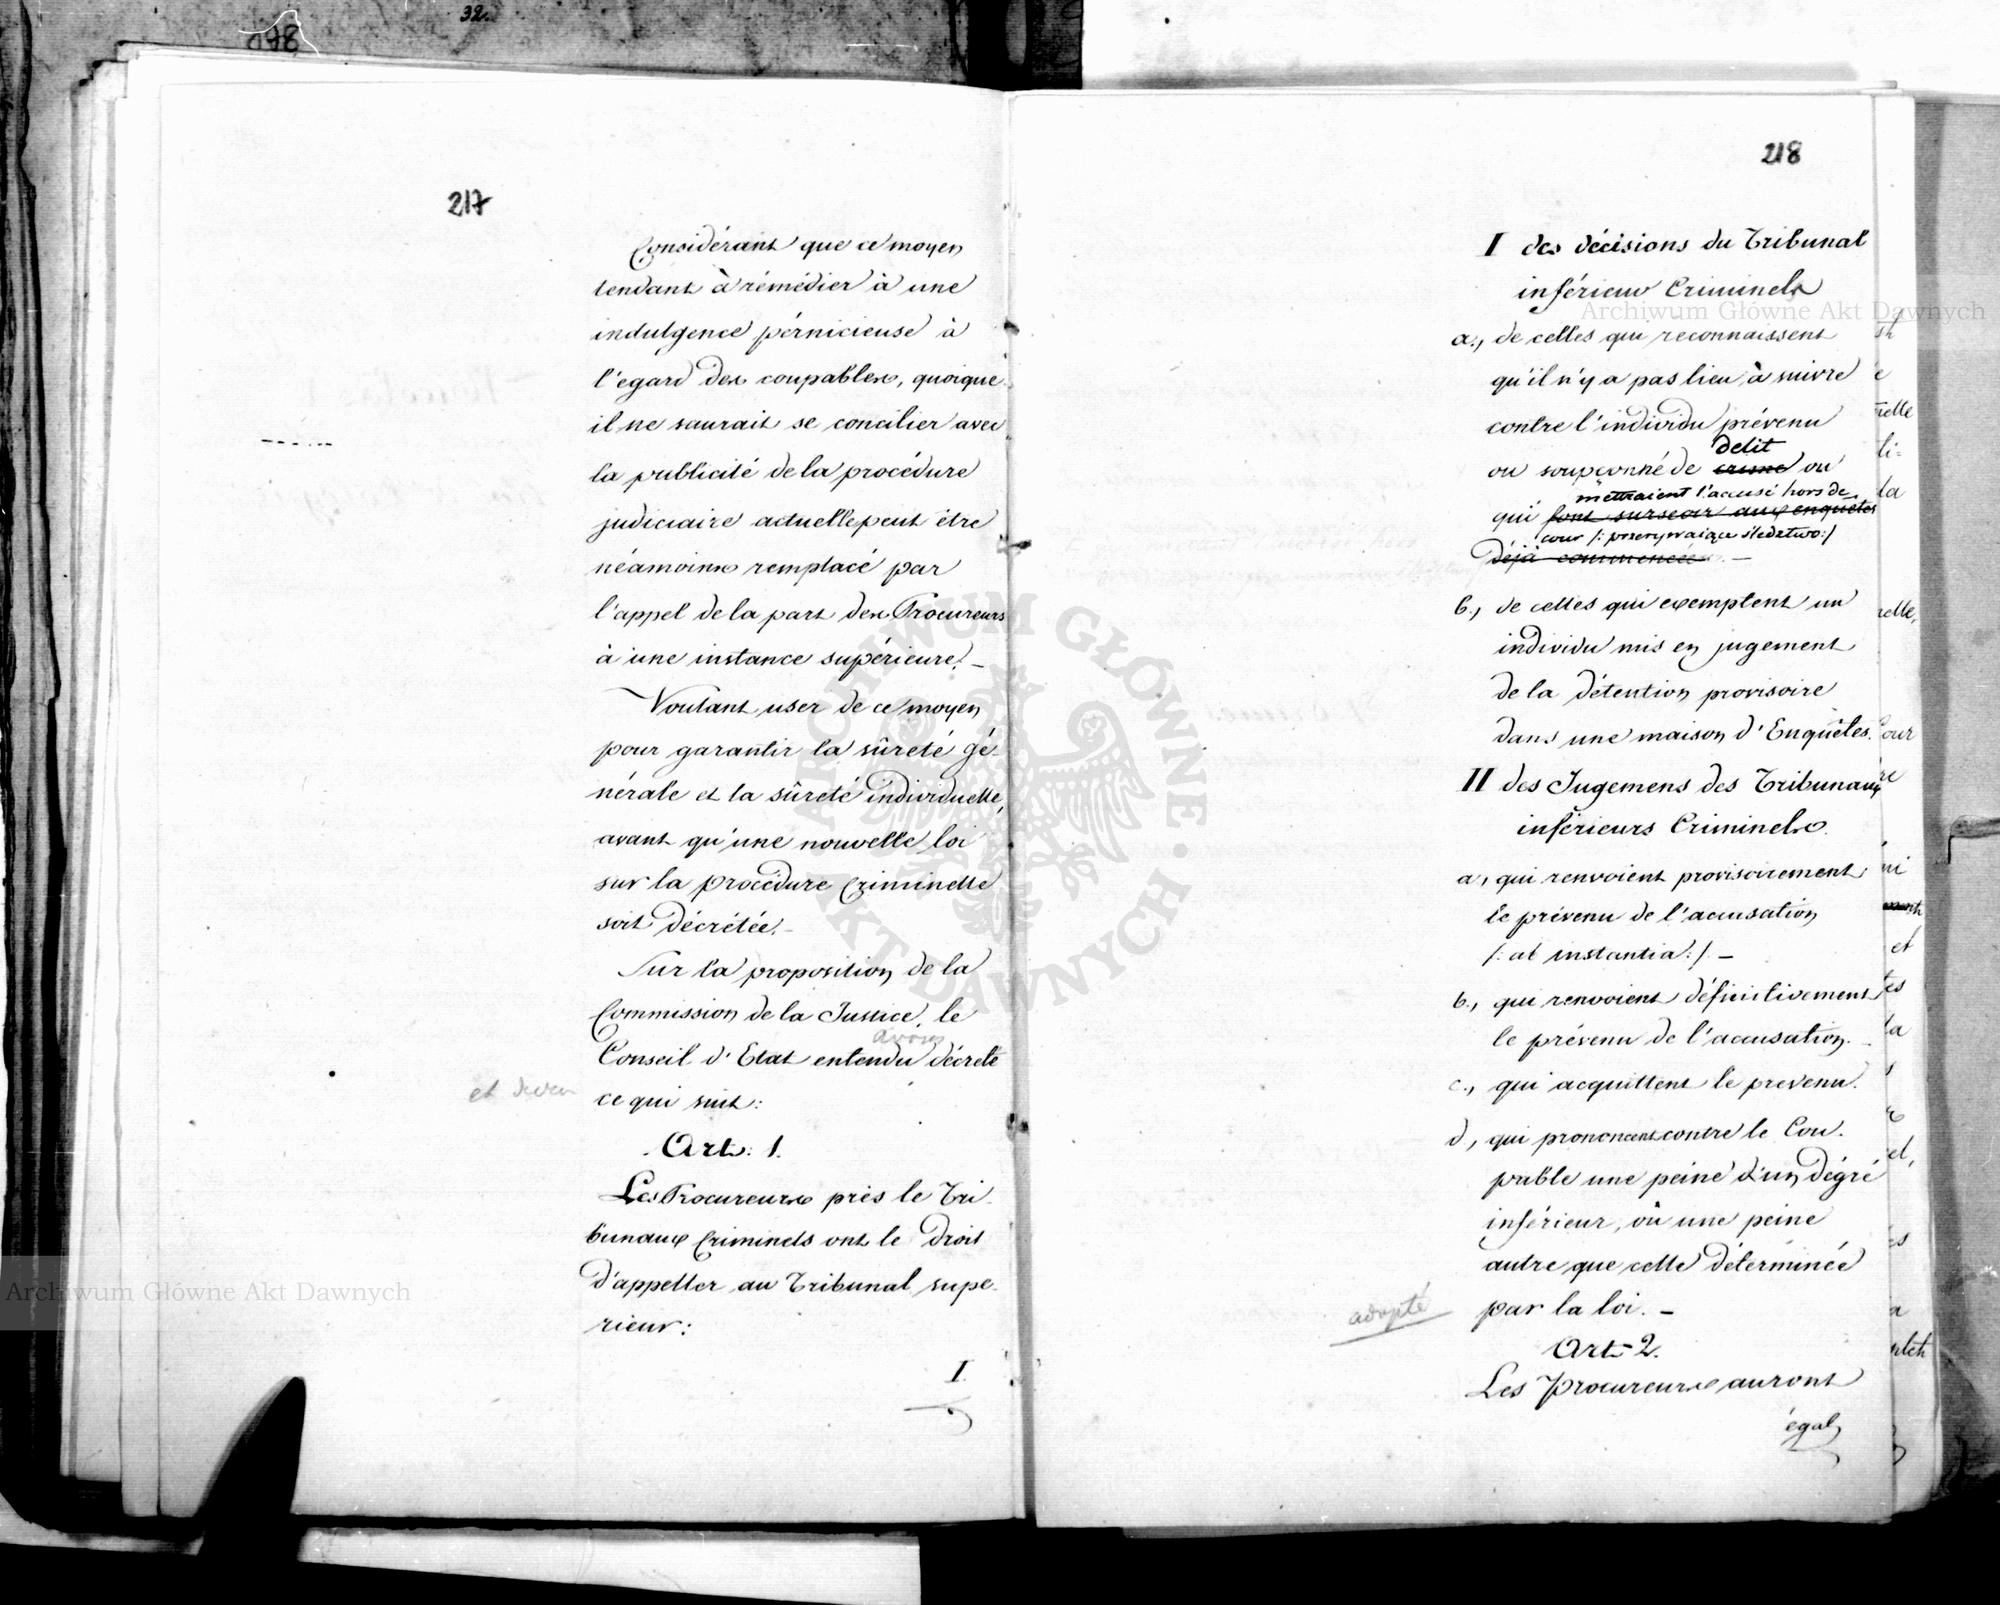 32.
098
217
Considérant que ce moyen
tendant à rémédier à une
indulgence pérnicieuse à
l'egard des coupables, quoique
il ne saurait se concilier avec
la publicité de la procédure
judiciaire actuelle peut être
néamoins remplacé par
l'appel de la part des Procureurs
à une instance supérieure. –
Voulant user de ce moyen
pour garantir la sûreté gé-
nérale et la sûreté individuelle,
avant qu'une nouvelle loi
sur la procédure Criminelle
soit décrétée. –
Sur la proposition de la
Commission de la Justice, le
avons
Conseil d'Etat entendu décrete
ce qui suit:
Art: 1.
Les Procureurs près le Tri-
bunaux Criminels ont le Droit
d'appeller au Tribunal supe-
rieur:
I.
218
I des décisions du Tribunal
inférieur Criminels
a., de celles qui reconnaissent
qu'il n'y a pas lieu à suivre
contre l'individu prévenu
delit
ou soupçonné de crime ou
mettraient l'accusé hors de
qui font surseoir aux enquêtes
cour /: przerywaiące śledztwo :/
déjà commencées. –
b., de celles qui exemptent un
individu mis en jugement
de la détention provisoire
dans une maison d'Enquêtes.
II des Jugemens des Tribunaux
inférieurs Criminels.
a, qui renvoient provisoirement
le prévenu de l'accusation
/: ab instantia :/ –
b., qui renvoient définitivement
le prévenu de l'accusation. –
c., qui acquittent le prevenu.
d, qui prononcent contre le Cou-
pable une peine d'un dégré
inférieur, où une peine
autre que celle déterminée
par la loi. –
adopté
Art. 2.
Les Procureurs auront
égal
Archiwum Główne Akt Dawnych
Archiwum Główne Akt Dawnych
ARCHIWUM GŁÓWNE AKT DAWNYCH